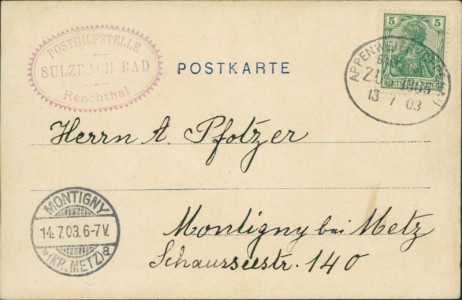 POSTHILFSTELLE
SULZBACH-BAD
Renchthal
POSTKARTE
5 5
BAHNPOST
ZUG
13 7 03
Herrn A. Pfotzer
MONTIGNY
14.7.03.6-7V.
(KR. METZ) a
Montigny bei Metz
Schausseestr. 140